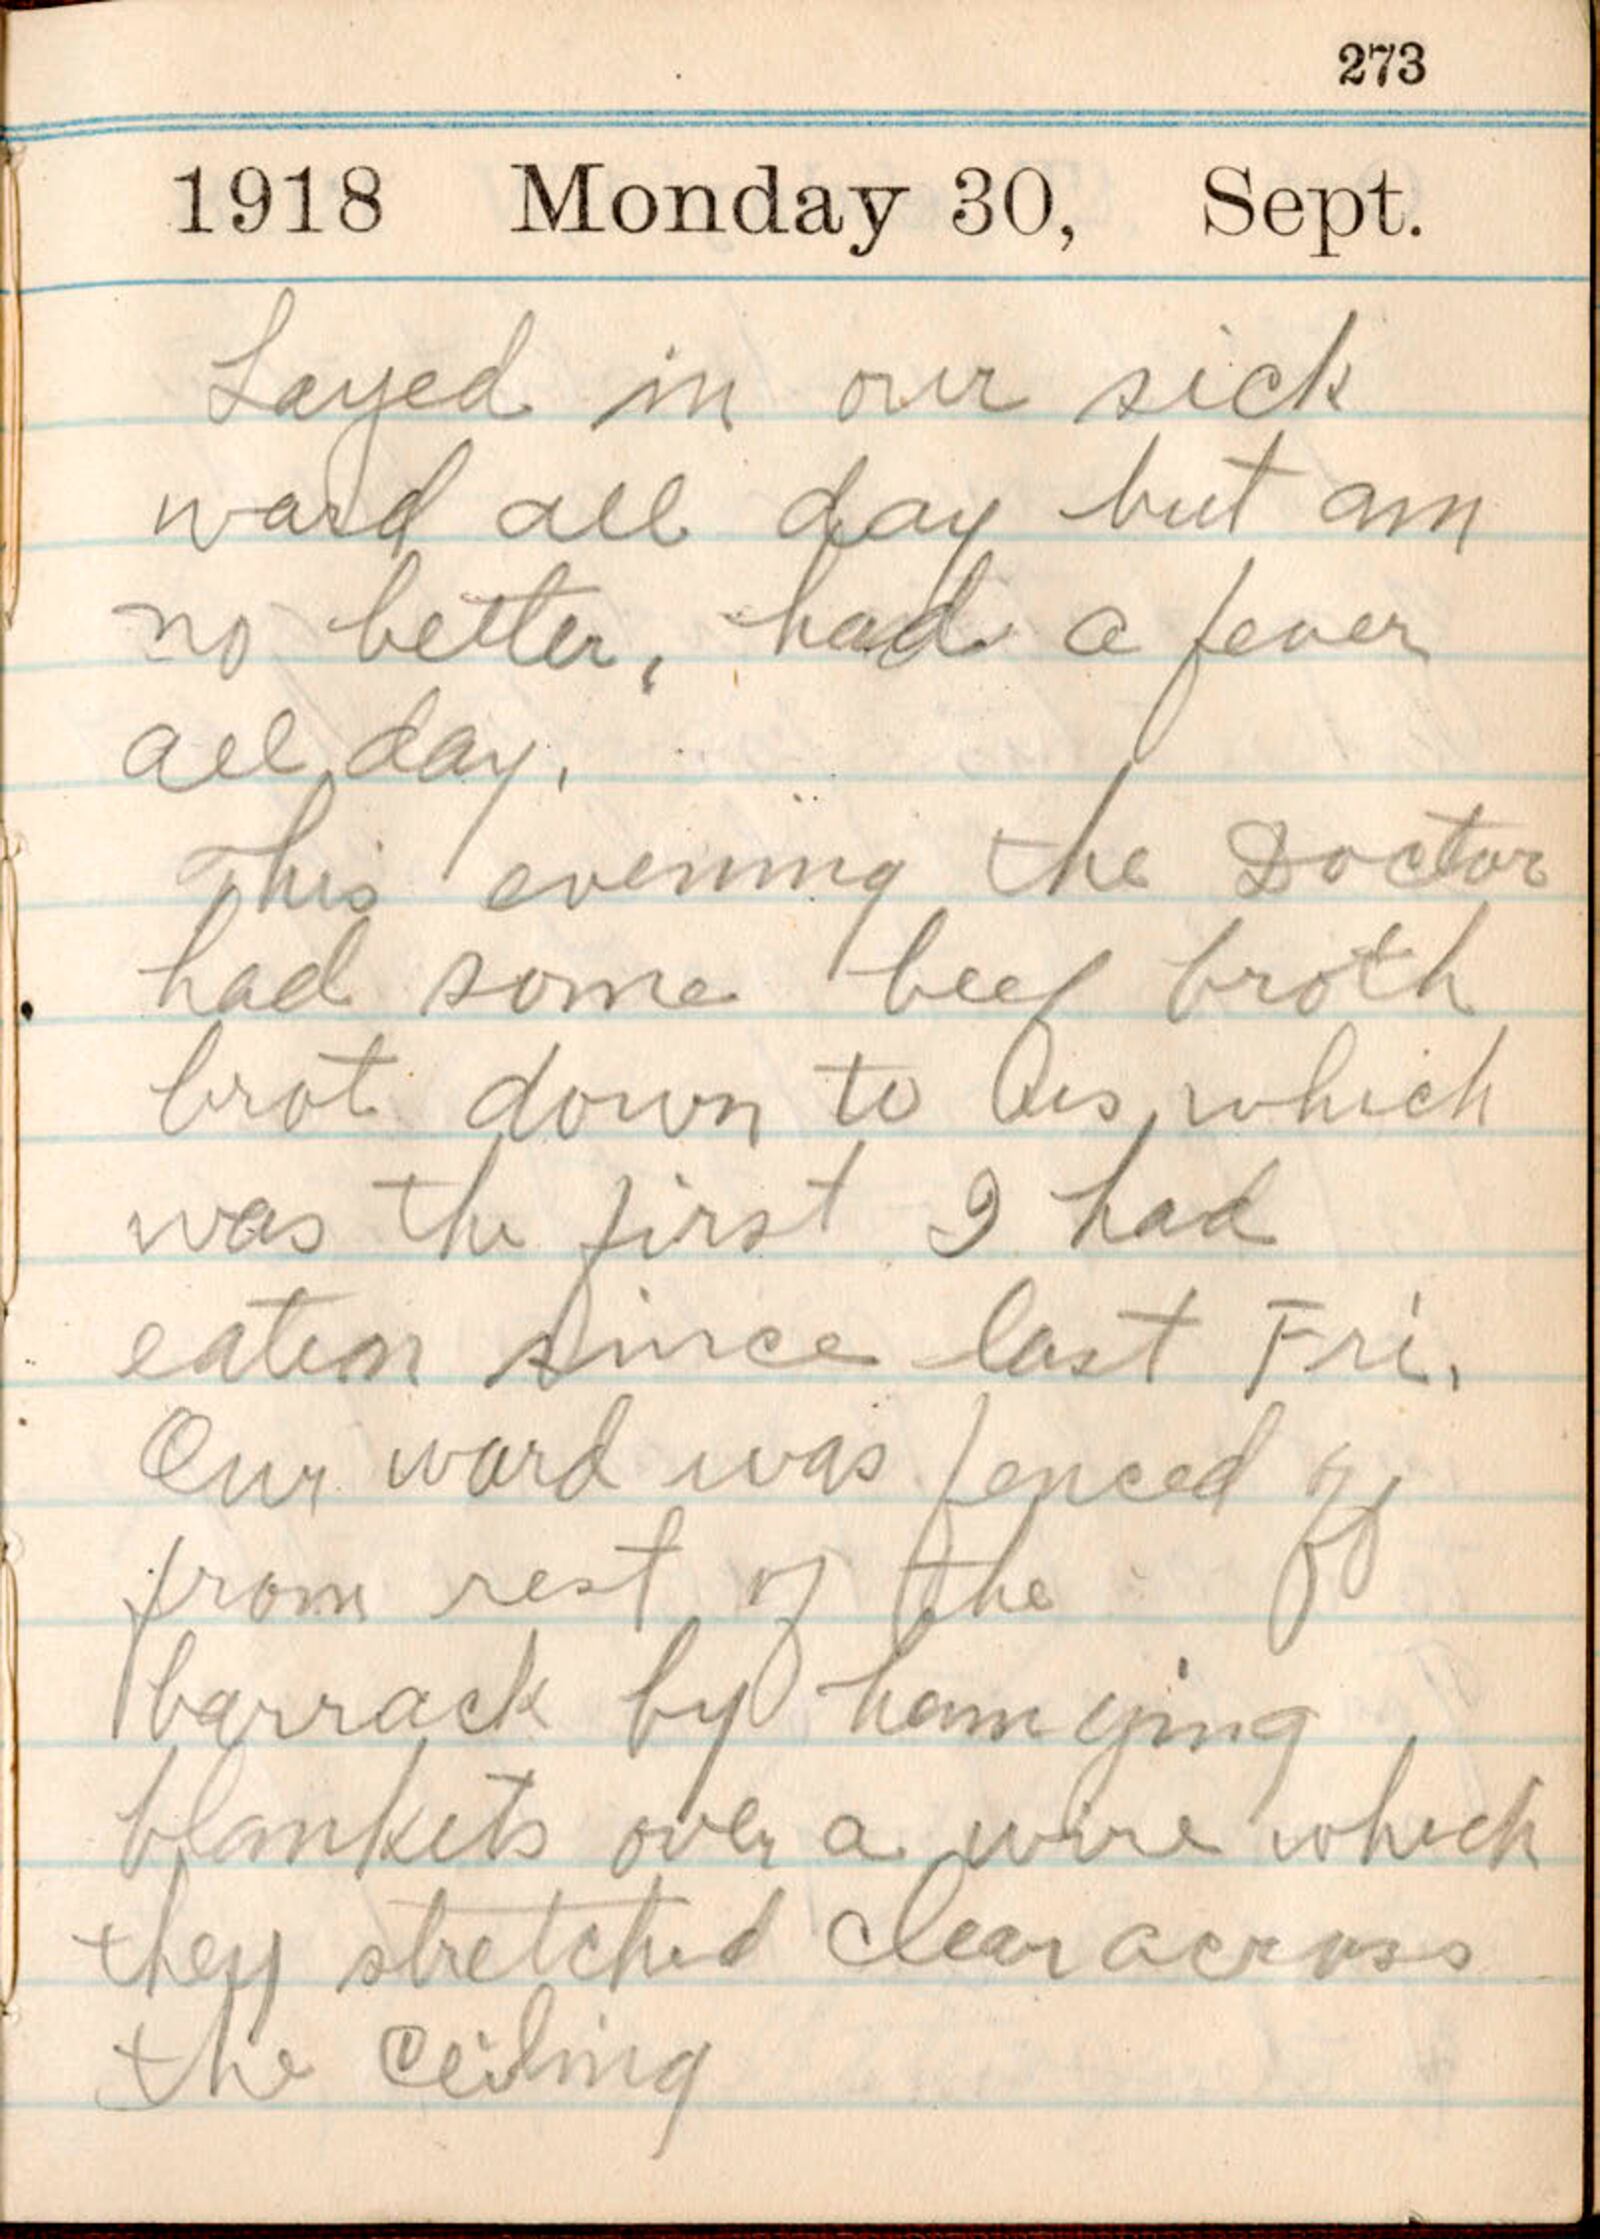 273
1918 Monday 30, Sept.
Layed in our sick
ward all day but am
no better, had a fever
all day.
This evening the Doctor
had some beef broth
brot down to us, which
was the first I had
eaten since last Fri.
Our ward was fenced off
from rest of the
barrack by hanging
blankets over a wire which
they stretched clear across
the ceiling